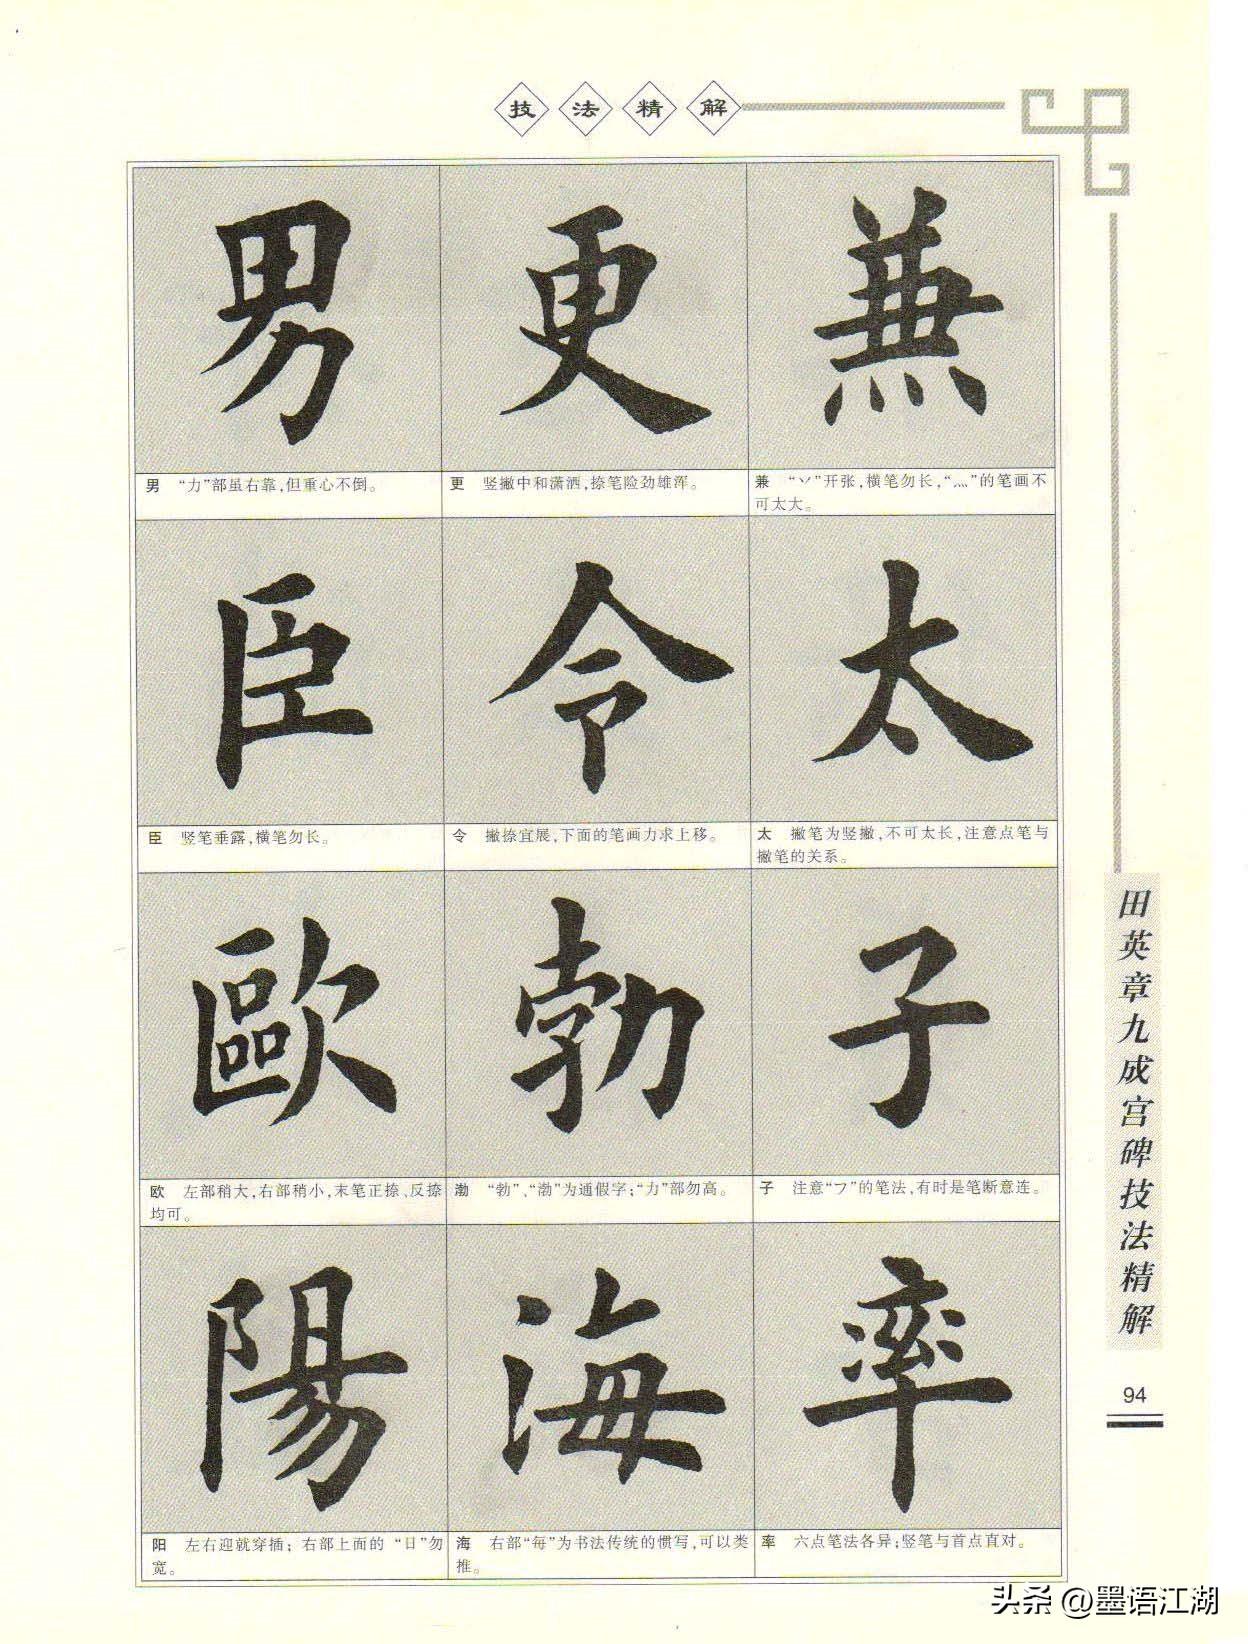 技法精解
男 更 兼
男 “力”部虽右靠,但重心不倒。
更 竖撇中和潇洒,捺笔险劲雄浑。
兼 “丷”开张,横笔勿长,“灬”的笔画不
可太大。
臣 令 太
臣 竖笔垂露,横笔勿长。
令 撇捺宜展,下面的笔画力求上移。
太 撇笔为竖撇,不可太长,注意点笔与
撇笔的关系。
歐 勃 子
欧 左部稍大,右部稍小,末笔正捺、反捺
均可。
渤 “勃”、“渤”为通假字;“力”部勿高。
子 注意“フ”的笔法,有时是笔断意连。
陽 海 率
阳 左右迎就穿插;右部上面的“日”勿
宽。
海 右部“每”为书法传统的惯写,可以类
推。
率 六点笔法各异;竖笔与首点直对。
田英章九成宫碑技法精解
94
头条 @墨语江湖